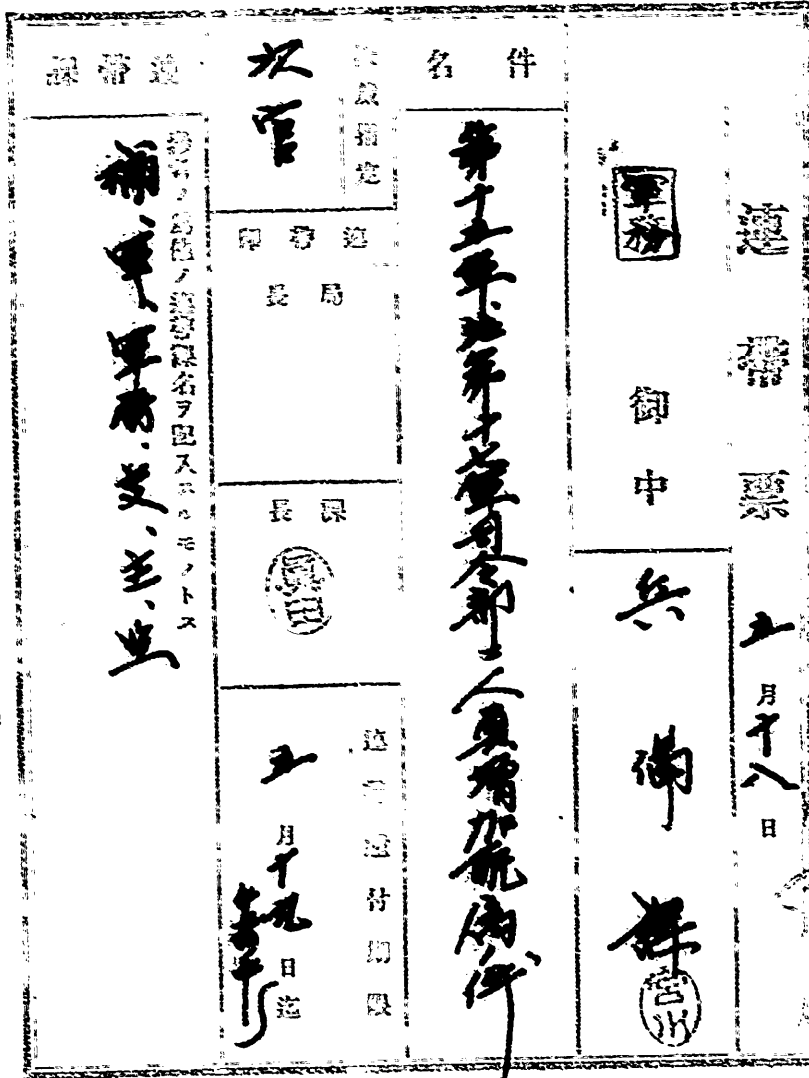 連帯票
五月十八日
軍務 御中
兵備課 宮川
件名
第十五軍、及第十七軍司令部ニ人員増加配属ノ件
決裁指定
次官
連帯課
局長
課長
眞田
連帯送付期限
五月十九日迄
連帯課
ノ連帯課名ヲ記入スルモノトス
補、軍、軍務、